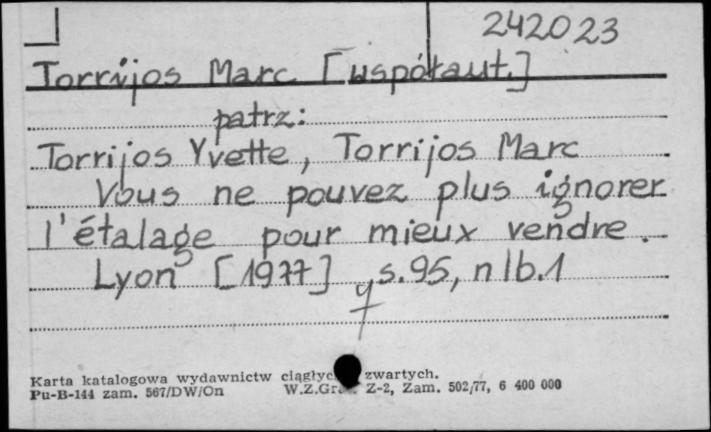 242023
Torrijos Marc [współaut.]
patrz:
Torrijos Yvette, Torrijos Marc
Vous ne pouvez plus ignorer
l'étalage pour mieux vendre.
Lyon [1977] s.95, nlb.1
Karta katalogowa wydawnictw zwartych.
Pu-B-144 zam. 567/DW/On W.Z.Gr Z-2, Zam. 502/77, 6 400 000